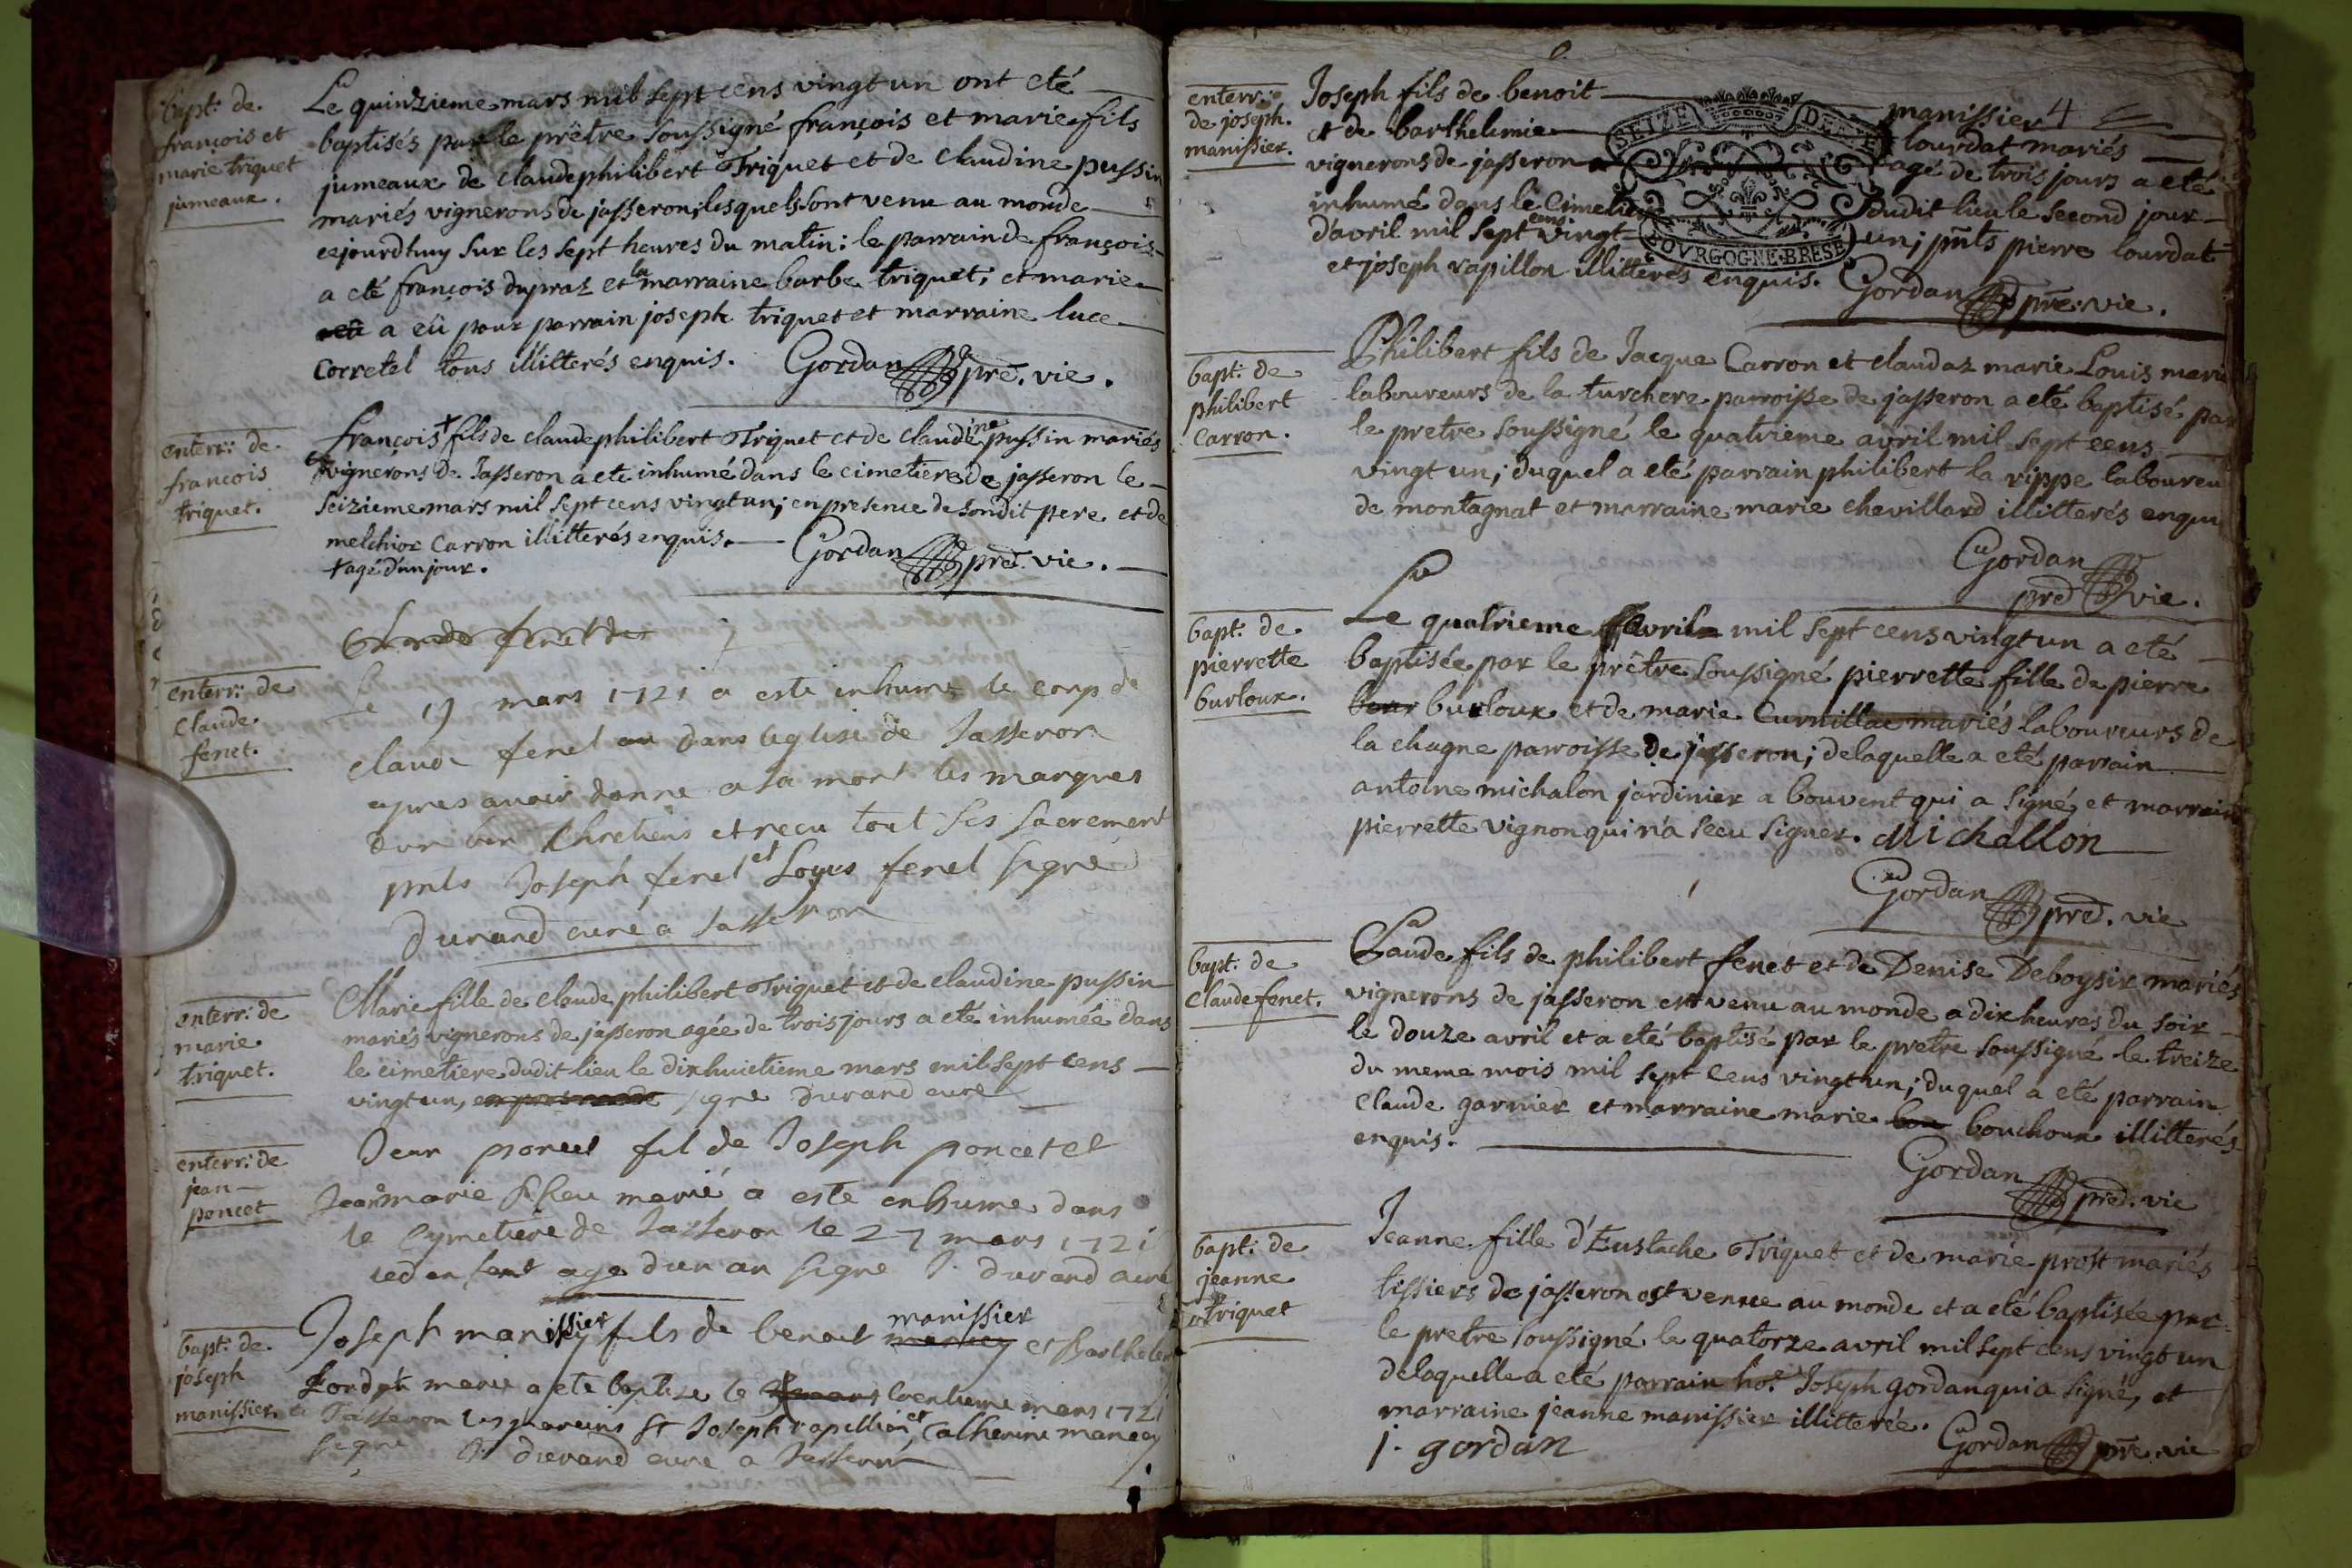 bapt: de
françois et
marie triquet
jumeaux.
Le quinzieme mars mil sept cens vingt un ont eté
baptisés par le prêtre soussigné françois et marie fils
jumeaux de claude philibert Triquet et de claudine pussin
mariés vignerons de jasseron; lesquels sont venu au monde
cejourdhuy sur les sept heures du matin: le parrain de françois
a eté françois dupraz et la marraine barbe triquet; et marie
a eû pour parrain joseph triquet et marraine luce
Corretel tous illitterés enquis. Gordan prē. vic.
enterr: de
françois
triquet.
françois + fils de claude philibert Triquet et de claudine pussin mariés
vignerons de Jasseron a eté inhumé dans le cimetiere de jasseron le
seizieme mars mil sept cens vingt un; en presence de sondit pere et de
melchior Carron illitterés enquis. Gordan prē. vic.
+ agé d'un jour.
enterr: de
Claude
fenet.
Le 19 mars 1721 a esté inhumé le corp de
claude fenet dans leglise de Jasseron
apres avoir donne a sa mort les marques
dun bon Chretiens et recu tout ses sacrement
pnts Joseph fenet et Louys fenet signé
Durand curé a Jasseron
enterr: de
marie
triquet.
Marie fille de claude philibert Triquet et de claudine pussin
mariés vignerons de jasseron agée de trois jours a eté inhumée dans
le cimetiere dudit lieu le dixhuictieme mars mil sept cens
vingt un, signé Durand curé
enterr: de
jean
poncet
Jean poncet fil de Joseph poncet et
Jeane marie marié a esté enhume dans
le Cymetiere de Jasseron le 27 mars 1721
led enfent age dun an signe J. Durand curé
bapt: de
joseph
manissier.
Joseph manissier fils de benoit manissier et Barthelem
Lordat marie a ete baptise le trentieme mars 1721
a Jasseron les pareins st Joseph rapillion et Catherine mancey
signe J. Durand cure a Jasseron
enterr:
de joseph.
manissier.
Joseph fils de benoit manissier 4
et de barthelemie lourdat mariés
vignerons de jasseron agé de trois jours a eté
inhumé dans le Cimetiere dudit lieu le second jour
d'avril mil sept cens vingt un; pn̄ts pierre lourdat
et joseph rapillon illitterés enquis. Gordan prē. vic.
SEIZE DEN
BOVRGOGNE·BRESE
bapt: de
philibert
Carron.
Philibert fils de Jacque Carron et claudaz marie Louis mari
laboureurs de la turchere parroisse de jasseron a eté baptisé par
le pretre soussigné le quatrieme avril mil sept cens
vingt un; duquel a eté parrain philibert la vippe laboureu
de montagnat et marraine marie chevillard illitterés enqui
Gordan
prē vic.
bapt: de
pierrette
burloux.
Le quatrieme avril mil sept cens vingt un a eté
baptisée par le prêtre soussigné pierrette fille de pierre
burloux et de marie Curnillac mariés laboureurs de
la chagne parroisse de jasseron; delaquelle a eté parrain
antoine michalon jardinier a bouvent qui a signé, et marraine
pierrette vignon qui n'a sceu signer. Michallon
Gordan
prē. vic
bapt: de
Claude fenet.
Claude fils de philibert fenet et de Denise Deboysir mariés
vignerons de jasseron est venu au monde a dix heures du soir
le douze avril et a eté baptisé par le pretre soussigné le treize
du meme mois mil sept cens vingt un; duquel a eté parrain
Claude garnier et marraine marie bouchoux illitterés
enquis.
Gordan
prē. vic
bapt: de
jeanne
triquet
Jeanne fille d'Eustache Triquet et de marie prost mariés
tissiers de jasseron est venue au monde et a eté baptisée par
le pretre soussigné le quatorze avril mil sept cens vingt un
delaquelle a eté parrain ho.e Joseph gordan qui a signé, et
marraine jeanne manissier illitterée. Gordan prē. vic
j. gordan